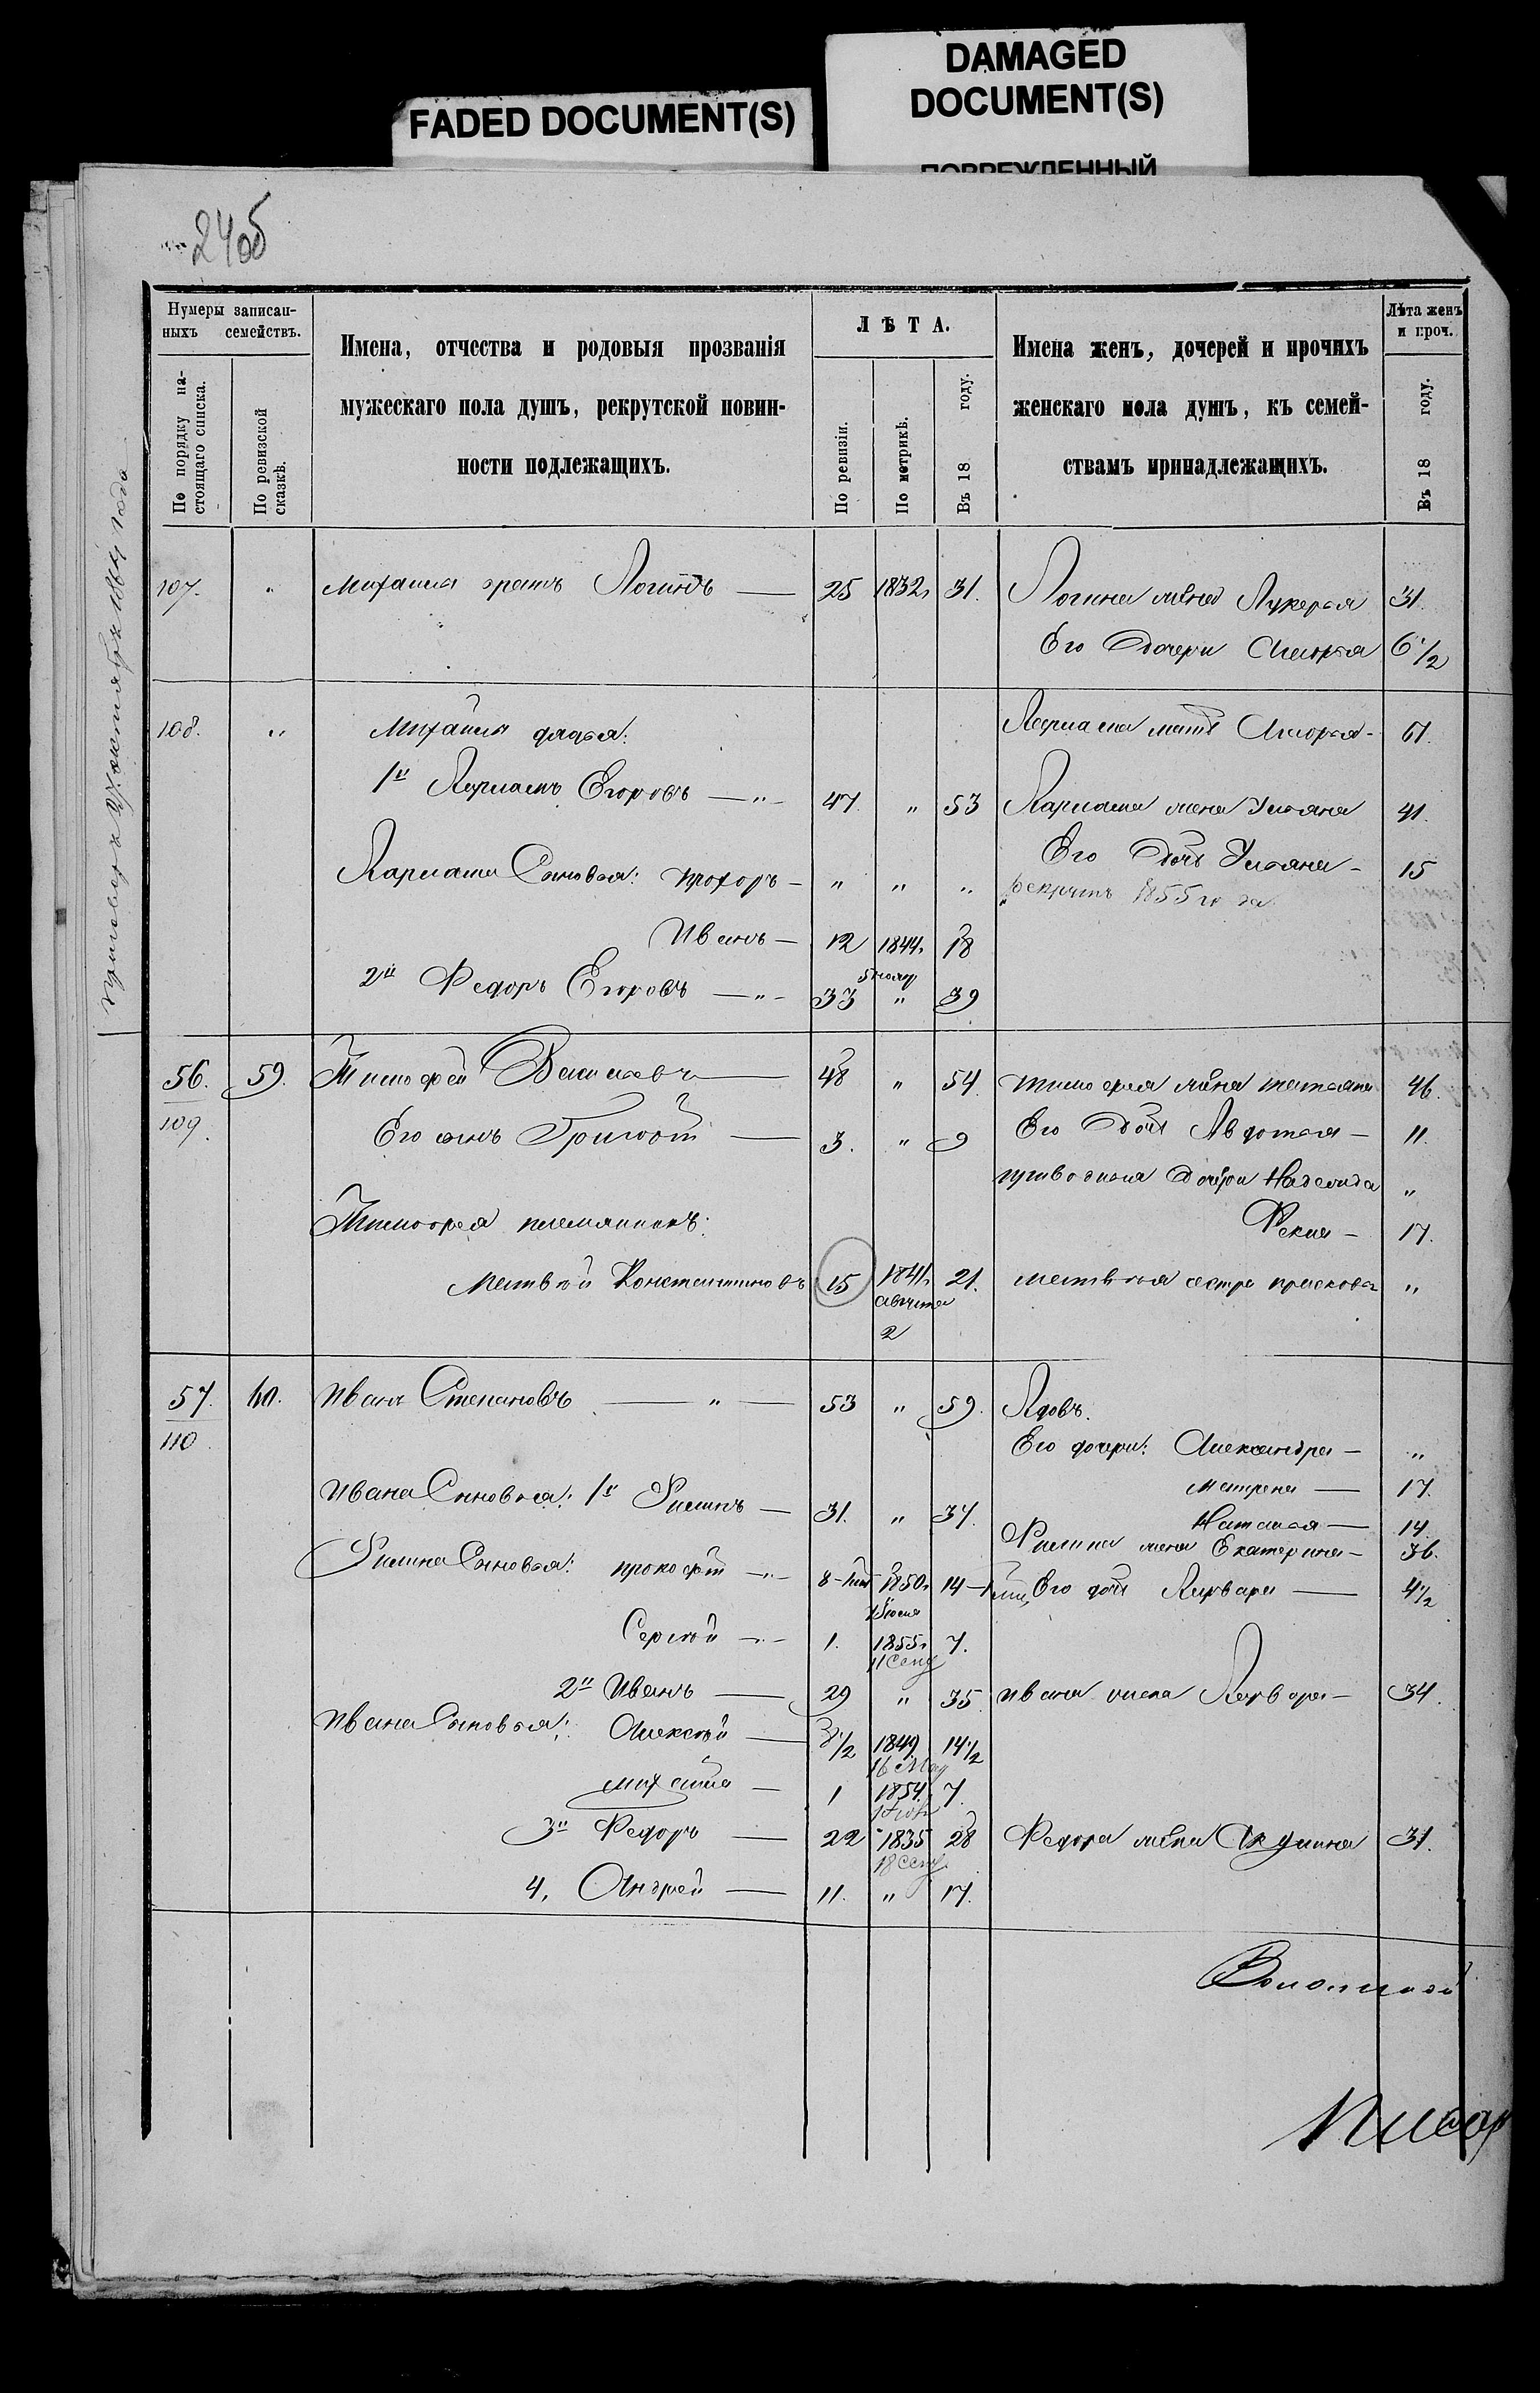 FADED DOCUMENT(S)
DAMAGED
DOCUMENT(S)
ПОВРЕЖДЕННЫЙ
24об
Нумеры записан-
ныхъ семействъ.
По порядку на-
стоящаго списка.
По ревизской
сказкѣ.
Имена, отчества и родовыя прозванія
мужескаго пола душъ, рекрутской повин-
ности подлежащихъ.
ЛѢТА.
По ревизіи.
По метрикѣ.
Въ 18 году.
Имена женъ, дочерей и прочихъ
женскаго пола душъ, къ семей-
ствамъ принадлежащихъ.
Лѣта женъ
и проч.
Въ 18 году.
107. " Михаила братъ Логинъ — 25 1832г 31. Логина жена Лукерья 31.
Его дочери Марья 6 1/2
108. " Михайла дядья: Лариона мать Марья - 61.
1й Ларионъ Егоровъ — " - 47. " 53 Лариона жена Ульяна 41.
Его дочь Ульяна - 15
Лариона Сыновья: Прохоръ - " " " рекрутъ 1855 года
Иванъ — 12 1844г 18
2й Федоръ Егоровъ — " - 33 " 39
56. 59. Тимофей Васильевъ — 48 " 54. Тимофея жена Татьяна 46.
109. Его сынъ Григорій — 3. " 9 Его дочь Авдотья — 11.
приводныя дочери Надежда "
Тимофея племянникъ: Фекла - 17.
Матвѣй Константиновъ 15 1841г 21. Матвѣя сестра Прасковья "
августа
2
57. 60. Иванъ Степановъ — " — 53 " 59. Вдовъ.
110. Его дочери: Александра — "
Матрена — 17.
Ивана Сыновья: 1й Филипъ — 31. " 37. Наталья — 14.
Филипа жена Екатерина — 36.
Филипа Сыновья: Прокофій — " - 8 1850г 14 Его дочь Варвара — 4 1/2
Сергѣй — " - 1. 1855г 7.
11 Сент
2й Иванъ — 29 " 35 Ивана жена Варвара — 34.
Ивана Сыновья: Алексѣй — 8 1/2 1849 14 1/2
16 Мая
Михайла — 1 1854. 7.
3й Федоръ — 22 1835 28 Федора жена Акулина 31.
18 Сент
4, Андрей — 11. " 17.
Волостной
Писарь